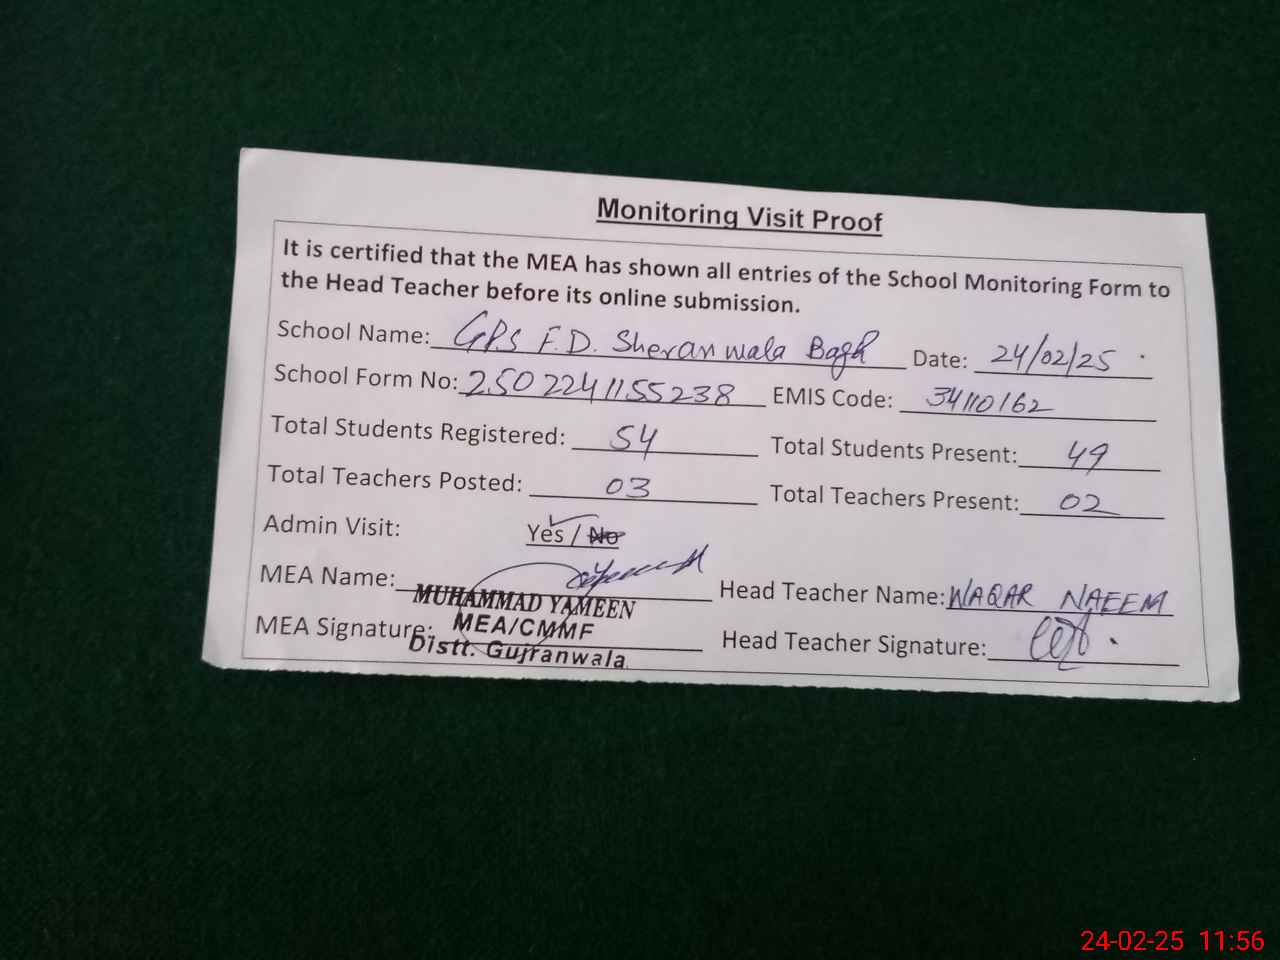 Monitoring Visit Proof
It is certified that the MEA has shown all entries of the School Monitoring Form to
the Head Teacher before its online submission.
School Name: GPS F.D. Sheranwala Bagh Date: 24/02/25
School Form No: 2502241155238 EMIS Code: 34110162
Total Students Registered: 54 Total Students Present: 49
Total Teachers Posted: 03 Total Teachers Present: 02
Admin Visit: Yes / No
MEA Name: MUHAMMAD YAMEEN Head Teacher Name: WAQAR NAEEM
MEA Signature: MEA/CMMF Head Teacher Signature:
Distt. Gujranwala
24-02-25 11:56